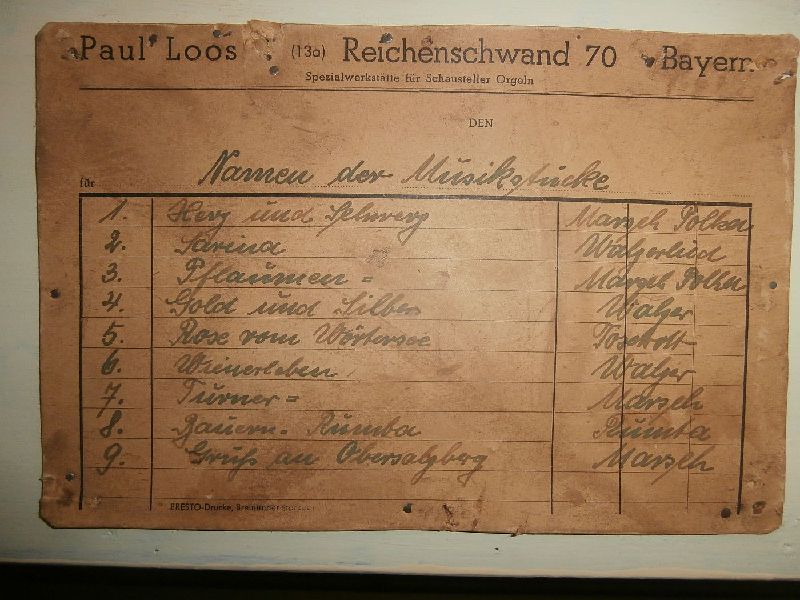 Paul Loos (13a) Reichenschwand 70 Bayern
Spezialwerkstätte für Schausteller Orgeln
DEN
für Namen der Musikstücke
1. Herz und Schmerz Marsch Polka
2. Sarina Walzerlied
3. Pflaumen = Marsch Polka
4. Gold und Silber Walzer
5. Rose vom Wörtersee
6. Wienerleben Walzer
7. Turner = Marsch
8. Bauern- Rumba Rumba
9. Gruß an Obersalzberg Marsch
BRESTO-Drucke,